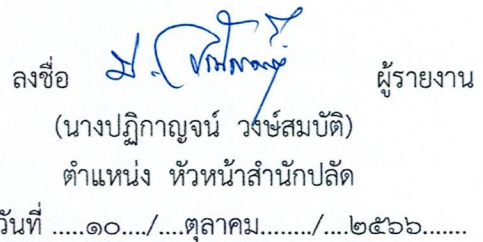 ลงชื่อ ผู้รายงาน
(นางปฏิกาญจน์ วงษ์สมบัติ)
ตำแหน่ง หัวหน้าสำนักปลัด
วันที่ .....๑๐..../....ตุลาคม......../....๒๕๖๖.......